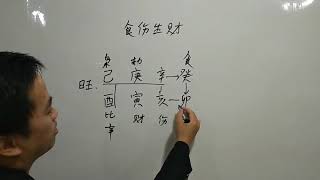 食伤生财
枭 劫 食
己 庚 辛→癸
旺. ↓
酉 寅 亥—卯
比 财 伤
辛